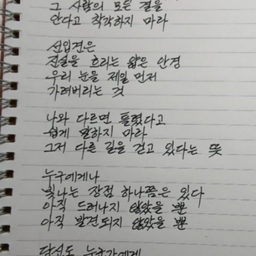 그 사람의 모든 결을
안다고 착각하지 마라
선입견은
진실을 흐리는 얇은 안경
우리 눈을 제일 먼저
가려버리는 것
나와 다르면 틀렸다고
쉽게 말하지 마라
그저 다른 길을 걷고 있다는 뜻
누구에게나
빛나는 장점 하나쯤은 있다
아직 드러나지 않았을 뿐
아직 발견되지 않았을 뿐
당신도 누군가에게